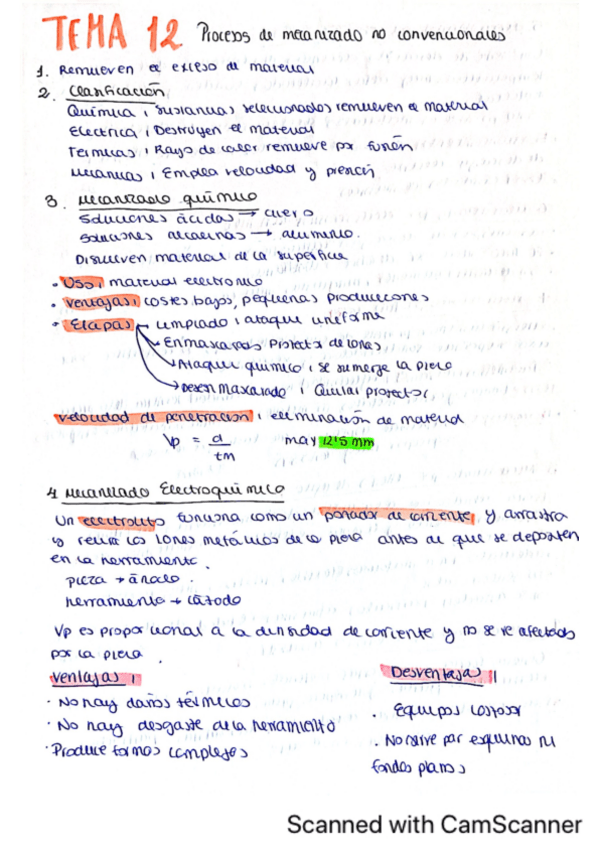 TEMA 12 Procesos de mecanizado no convencionales
1. Remueven el exceso de material
2. Clasificación
Química: sustancias seleccionadas remueven el material
Eléctrica: Destruyen el material
Térmicas: Rayo de calor remueve por fusión
Mecánicas: Emplea velocidad y presión
3. Mecanizado químico
Soluciones ácidas → acero
Soluciones alcalinas → aluminio.
Disuelven material de la superficie
• Uso: material electrónico
• Ventajas: costes bajos, pequeñas producciones
• Etapas Limpiado: ataque uniforme
Enmascarado: Protector de zonas
Ataque químico: se sumerge la pieza
Desenmascarado: Quitar protector
Velocidad de penetración: eliminación de material
Vp = d / tm max 12'5 mm
4. Mecanizado Electroquímico
Un electrolito funciona como un portador de corriente, y arrastra
y retira los iones metálicos de la pieza antes de que se depositen
en la herramienta.
pieza → ánodo.
herramienta → cátodo
Vp es proporcional a la densidad de corriente y no se ve afectada
por la pieza.
Ventajas:
· No hay daños térmicos
· No hay desgaste de la herramienta
· Produce formas complejas
Desventajas:
. Equipos costosos
. No sirve par esquinas ni
fondos planos
Scanned with CamScanner